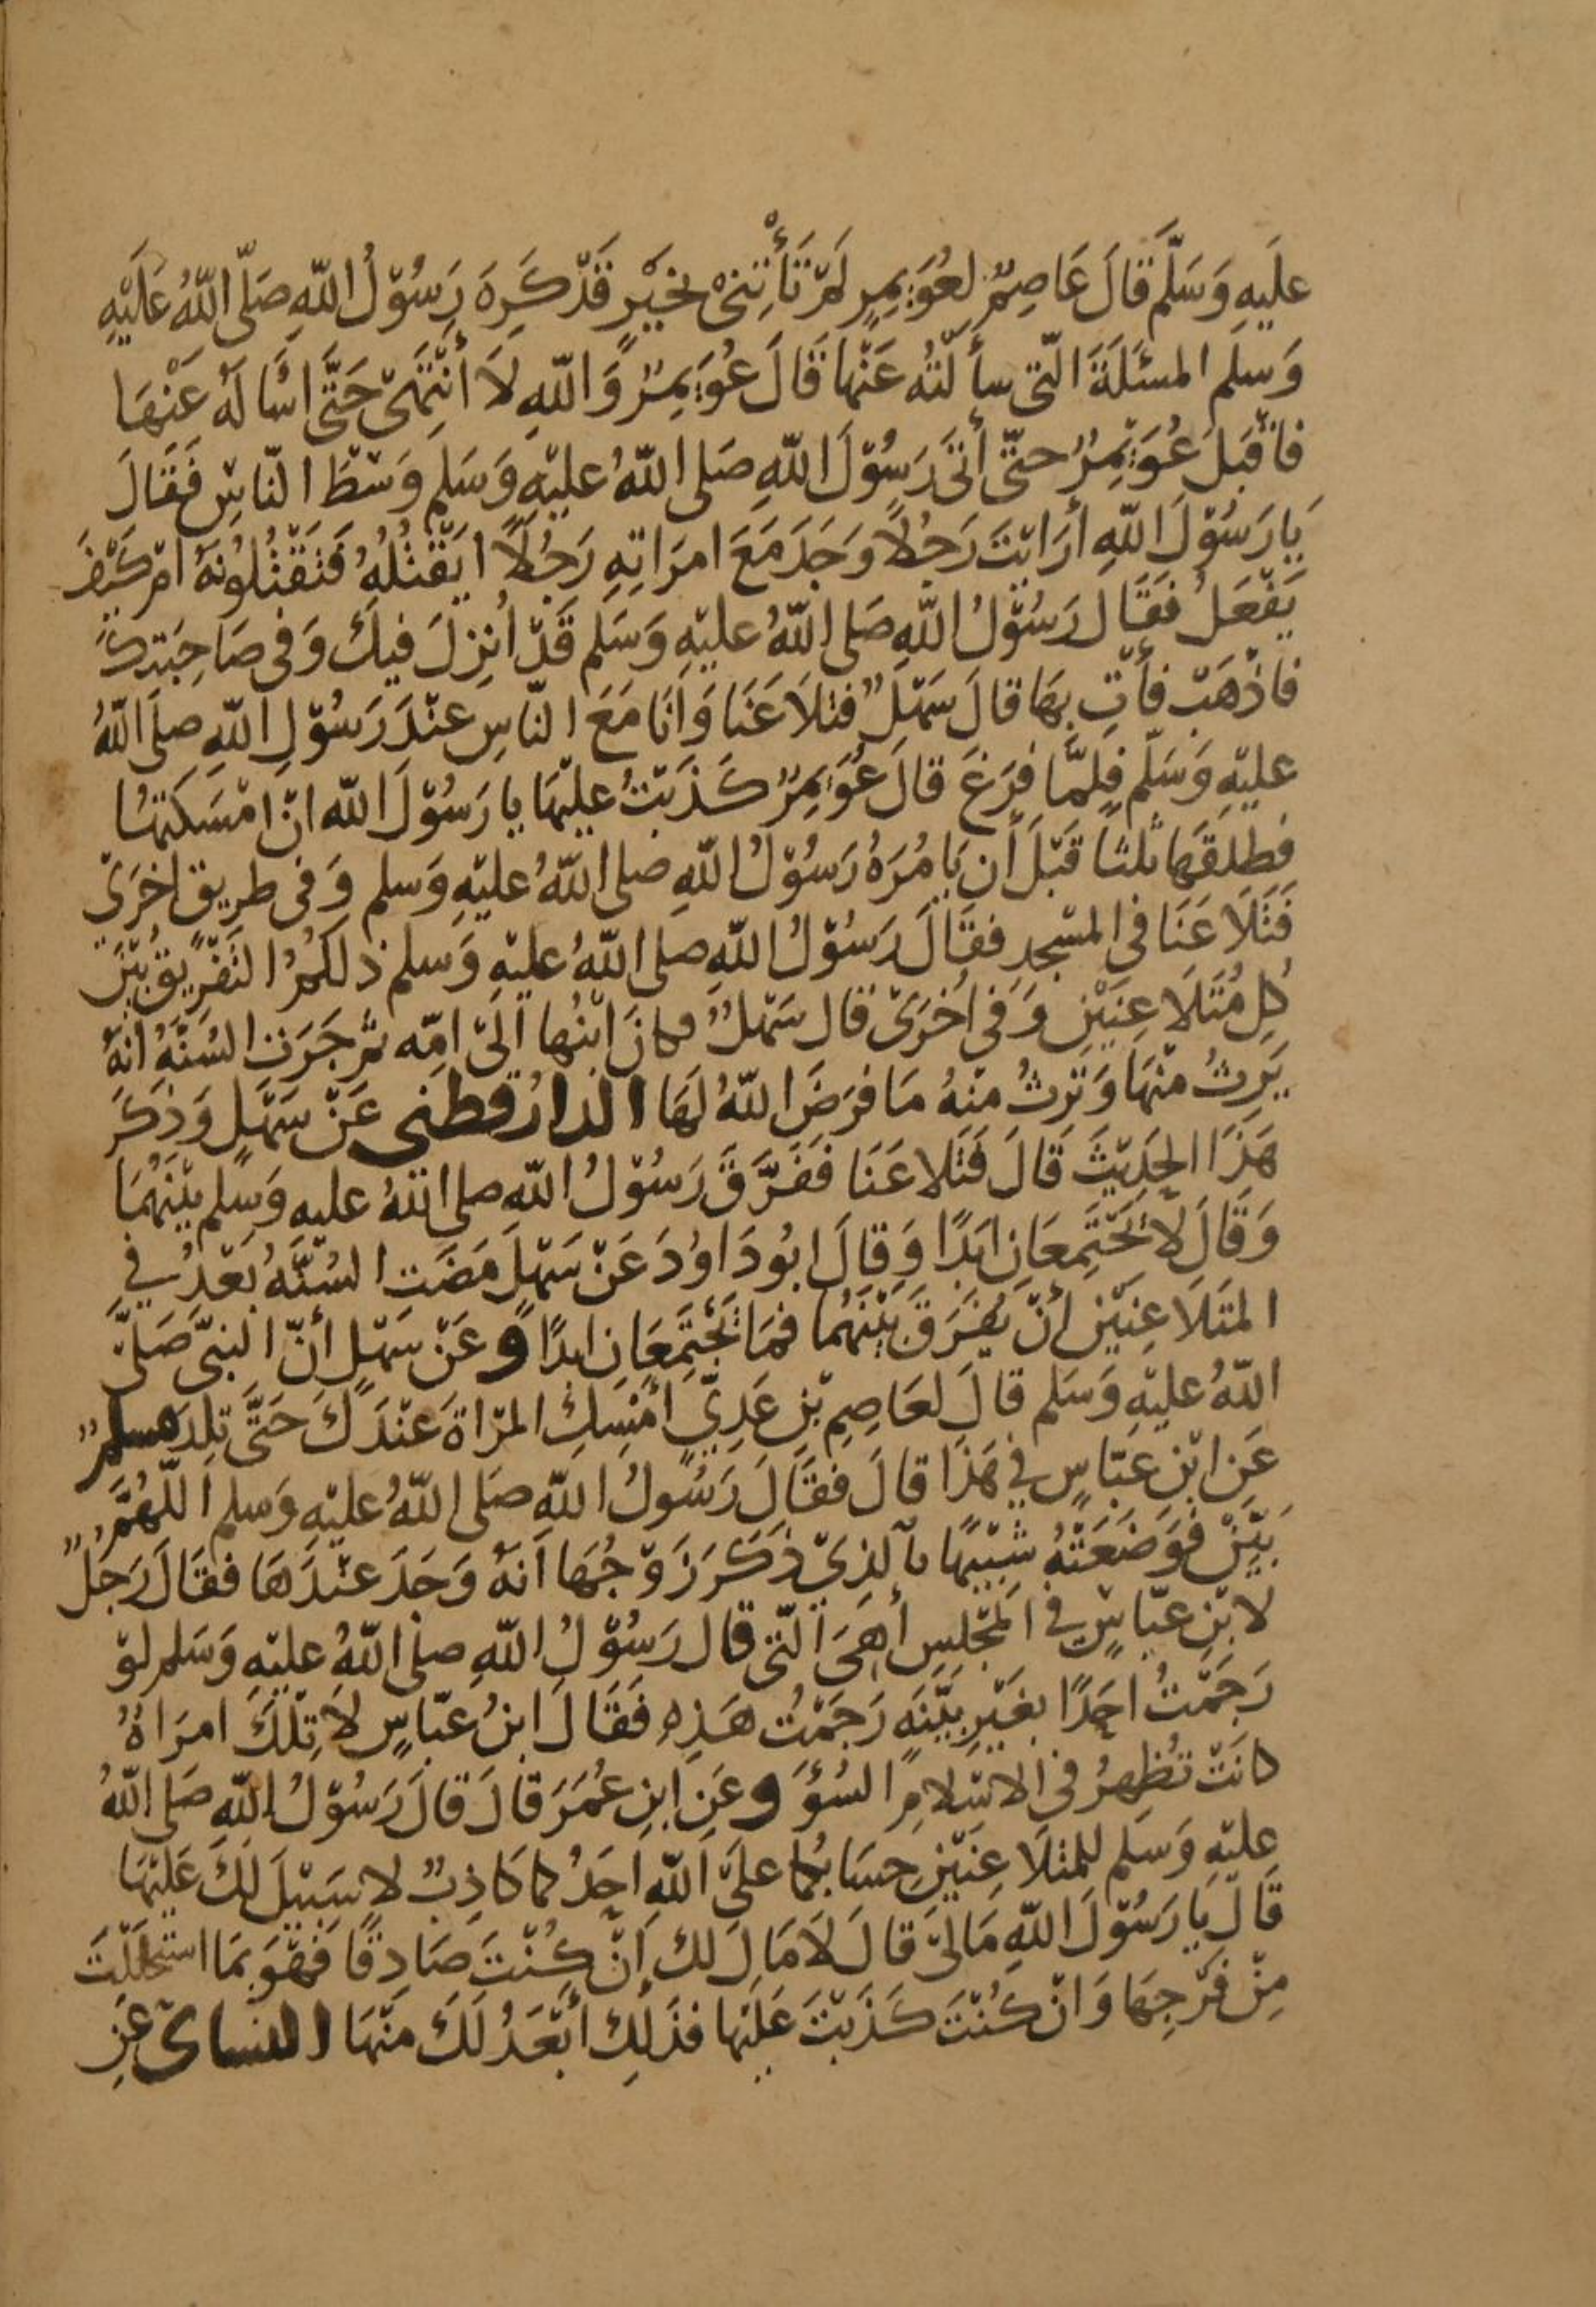 علَيهِ وَسَلَّمَ قَالَ عَاصِمٌ لِعُوَيمِرٍ لَمْ تَأْتِنِىْ بخَيْرٍ قَدْ كَرِهَ رَسُوْلُ اللّهِ صَلّى اللّهُ عَلَيْهِ
وَسلم المسئَلَةَ الّتى سأَلْتُه عَنْها قَالَ عُوَيمِرٌ وَاللّهِ لَا أَنْتَهِىْ حَتَّى اسْالَهُ عَنْهَا
فاقْبَلَ عُوَيْمِرٌ حتّى أَتَى رَسُوْلَ اللّهِ صَلى اللّهُ عليْهِ وَسَلم وَسْطَ النّاسِ فَقَالَ
يَا رَسُوْلَ اللّهِ أرَايْتَ رَجُلًا وَجَدَ مَعَ امرَاتِهِ رَجُلًا ايَقْتُلُهُ فَتَقْتُلُونَهُ امْ كَيْفَ
يَفْعَلُ فَقَالَ رَسُوْلُ اللّهِ صَلى اللّهُ عليْهِ وَسَلم قَدْ اُنزِلَ فيكَ وَفى صَاحِبَتِكَ
فاذْهَبْ فأْتِ بِهَا قالَ سَهْلٌ فتلَاعَنَا وَاَنَا مَعَ النّاسِ عنْدَ رَسُوْلِ اللّهِ صلَى اللّهُ
عليْهِ وَسَلّم فلمَّا فرَغَ قالَ عُوَيمِرٌ كَذَبْتُ عليْهَا يا رَسُوْلَ اللّه انْ امْسَكتهُا
فطلقَهَا ثلثًا قَبْلَ أَن يَامُرَهُ رَسُوْلُ اللّهِ صلى اللّهُ عليْهِ وَسلم وَفى طريقٍ اخرَىْ
فَتَلَاعَنَا فى المسْجدِ فقَالَ رَسُوْلُ اللّهِ صلى اللّهُ عليْهِ وَسلم ذلكمُ التَفْرِيقُ بَيْنَ
كُلِ مُتَلَاعِنَيْنِ وَفي اخرَىْ قال سَهْلٌ وكانَ ابْنُها الَىْ امِّه ثمَّ جَرَت السُنَّهُ انهُ
يَرِثُ منْهَا وَتَرِثُ منْهُ مَا فرَضَ اللّهُ لَهَا الدارُقطنى عَنْ سَهْلٍ وَذَكَرَ
هَذَا الحَدِيْثَ قَالَ فَتَلاعَنَا فَفَرَّقَ رَسُوْلُ اللّهِ صلى اللّهُ عليه وَسلم بيْنَهُمَا
وَقَالَ لَا يَجْتَمِعَانِ ابَدًا وَقالَ ابُو دَاوُدَ عَنْ سَهْلٍ مَضَت السُنَّهُ بَعْدُ فِي
المتَلَاعِنَيْنِ أَنْ يُفَرَقَ بَيْنَهُما فمَا يَجْتَمِعَانِ ابدًا و عَنْ سَهْلٍ أنّ النبىَّ صَلىَّ
اللّهُ عليْهِ وَسَلم قالَ لعَاصِمِ بْنِ عَدِيٍّ امْسِكِ المرْاةَ عنْدَكَ حَتَّى تلِدَ مسلمٌ
عَنِ ابْنِ عبَّاسٍ فِي هَذَا قالَ فقَالَ رَسُولُ اللّهِ صَلى اللّهُ عليْهِ وَسلم اللّهُمَّ
بَيِّنْ فوَضَعَتْهُ شَبِيْهًا بالذِيْ ذَكَرَ زَوْجُهَا اَنهُ وَجَدَ عنْدَهَا فقَالَ رَجلٌ
لابْنِ عبَّاسٍ فى المَجْلسِ أهِىَ الّتى قال رَسُوْلُ اللّهِ صلى اللّهُ عليْهِ وَسَلم لوْ
رَجَمْتُ احَدًا بغَيْرِ بَيِّنَهٍ رَجَمْتُ هَذِهِ فَقَالَ ابنُ عبَّاسٍ لَا تِلْكَ امرَاةٌ
كانَتْ تُظهِرُ فى الاسْلامِ السُؤَ و عَنِ ابنِ عُمَرَ قالَ قالَ رَسُوْلُ اللّهِ صَلى اللّهُ
عليْهِ وَسَلم للمتلَاعِنَيْنِ حسَابُكما علَى اللّهِ احَدُكما كَاذِبٌ لا سَبيْلَ لَكَ عَليْهَا
قَالَ يا رَسُوْلَ اللّهِ مَا لىْ قالَ لَا مَالَ لك إنْ كُنْتَ صَادِقًا فَهْوَ بمَا استَحْلَلْتَ
مِنْ فَرْجِهَا وَانْ كُنْتَ كَذَبْتَ عَليْها فذَلِك أبْعَدُ لَكَ منْهَا النساىْ عَنِ